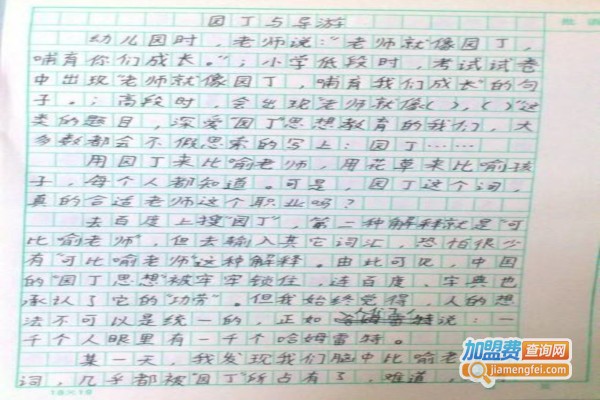 园丁与导游
批语
幼儿园时，老师说："老师就像园丁，
哺育你们成长。"；小学低段时，考试试卷
中出现"老师就像园丁，哺育我们成长"的句
子。；高段时，会出现"老师就像( )，( )"这
类的题目，深爱"园丁"思想教育的我们，大
多数都会不假思索的写上：园丁……
用园丁来比喻老师，用花草来比喻孩
子，每个人都知道。可是，园丁这个词，
真的合适老师这个职业吗？
去百度上搜"园丁"，第二种解释就是"可
比喻老师"，但去输入其它词汇，恐怕很少
有"可比喻老师"这种解释。由此可见，中国
的"园丁思想"被牢牢锁住，连百度、字典也
承认了它的"功劳"。但我始终觉得，人的想
法不可以是统一的，正如说：一
千个人眼里有一千个哈姆雷特。
某一天，我发现我们脑中比喻老
词，几乎都被"园丁"所占有了，难道，
18×19
加盟费查询网
jiamengfei.com